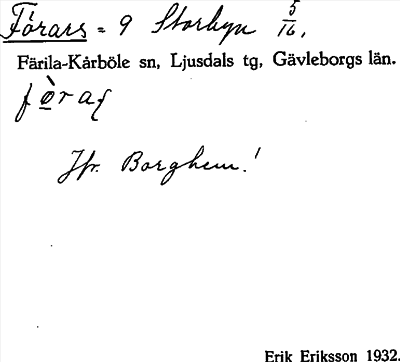 Fórars = 9 Storbyn 5/16.
Färila-Kårböle sn, Ljusdals tg, Gävleborgs län.
fò̲raʃ
Jfr. Borghem!
Erik Eriksson 1932.